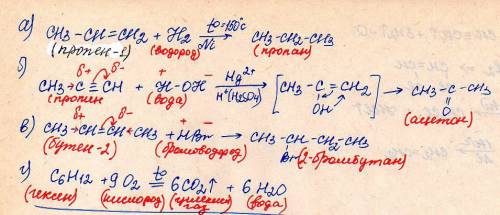 а) CH3-CH=CH2 + H2 t0=150°C Ni → CH3-CH2-CH3
(пропен-1) (водород) (пропан)
б) CH3→C≡CH + H-OH Hg2+ H+(H2SO4) → [CH3-C=CH2 OH] → CH3-C-CH3 O
(пропин) (вода) (ацетон)
в) CH3→CH=CH←CH3 + HBr → CH3-CH-CH2-CH3 Br
(бутен-2) (бромоводород) (2-бромбутан)
г) C6H12 + 9O2 t0= 6CO2↑ + 6H2O
(гексен) (кислород) (углекислый газ) (вода)